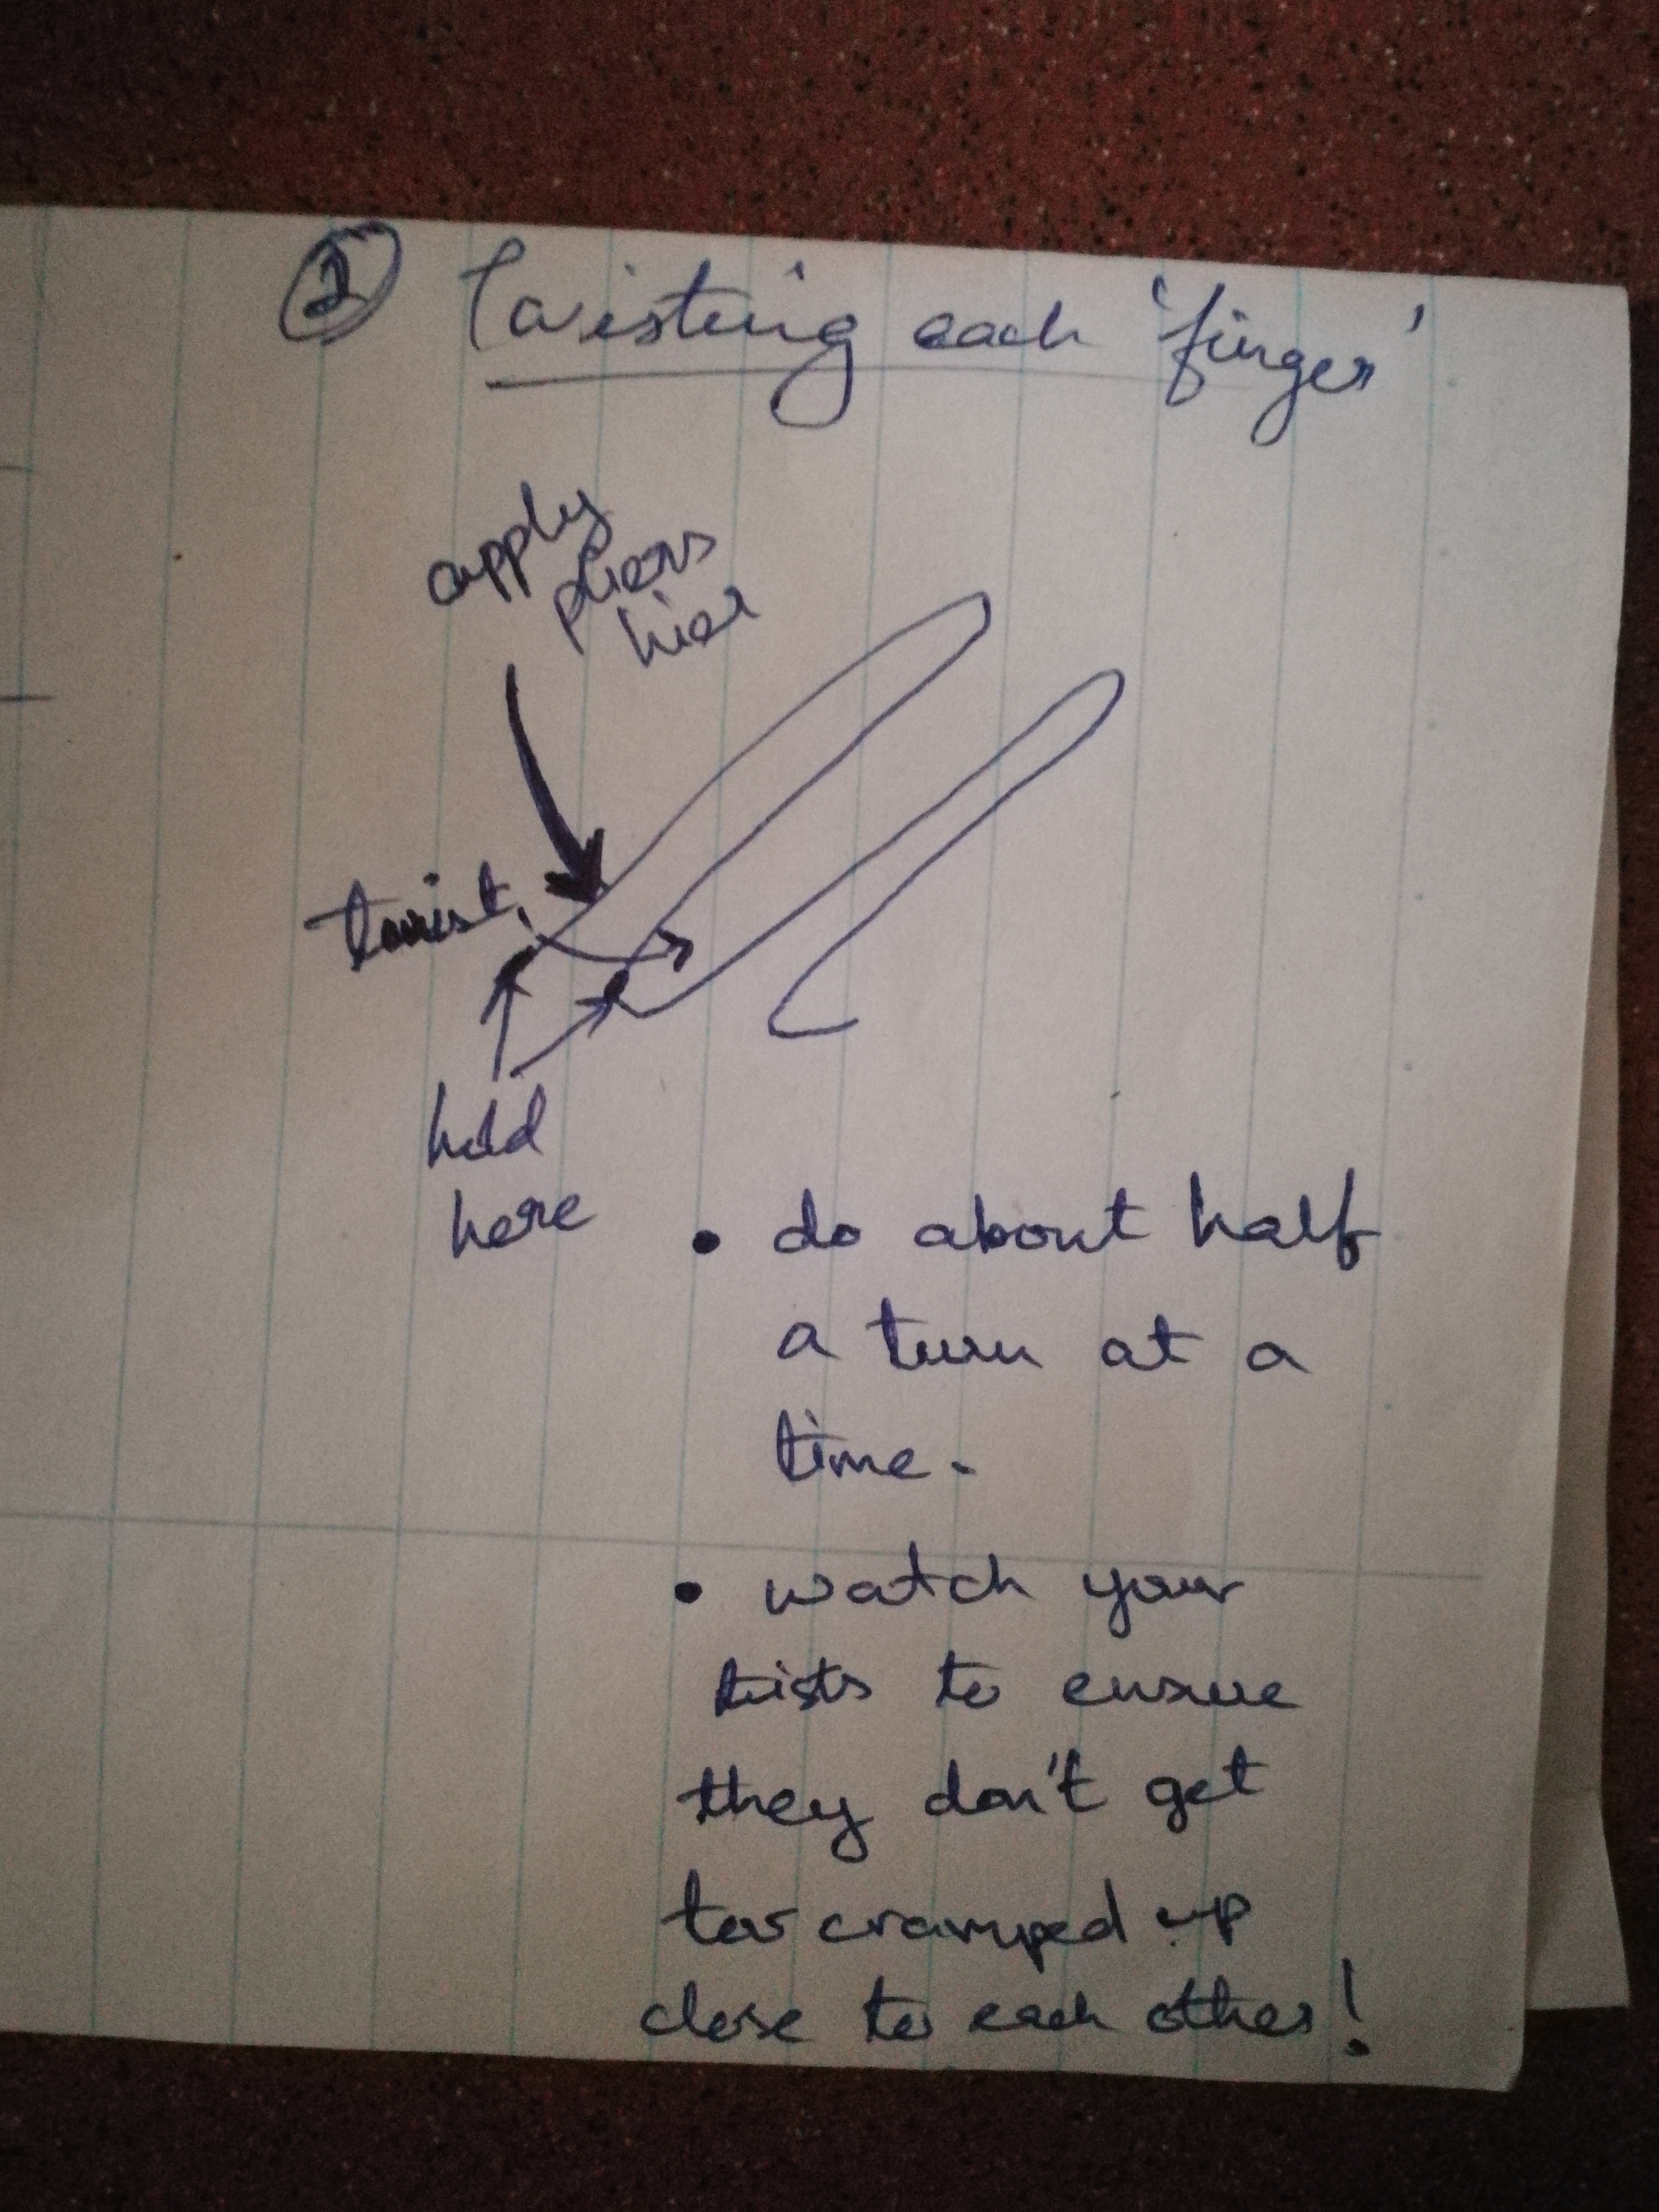 ② Twisting each 'finger'
apply
pliers
hier
twist
hold
here
• do about half
a turn at a
time.
• watch your
twists to ensure
they don't get
too cramped up
close to each other!